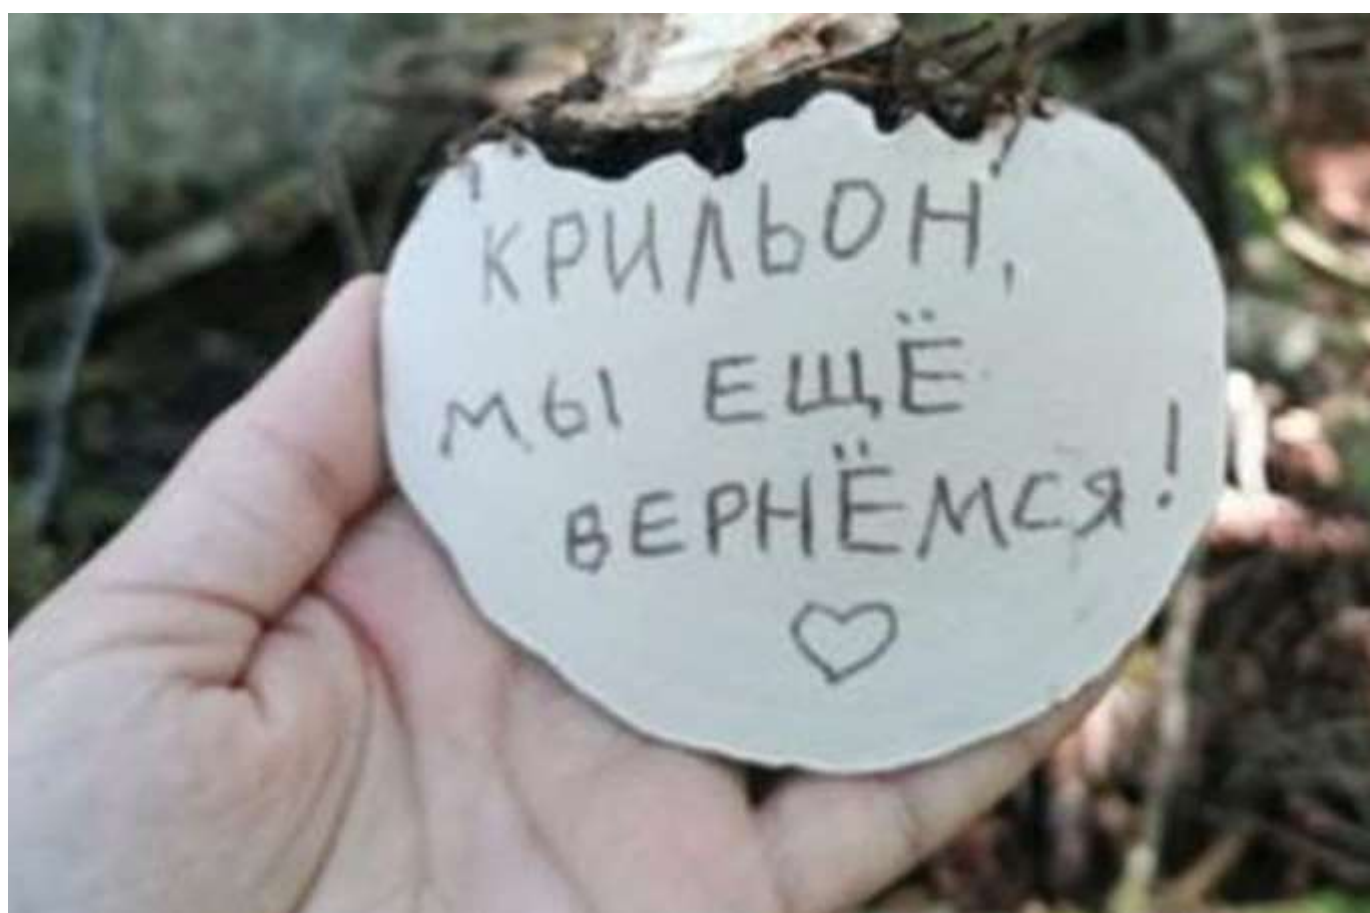 КРИЛЬОН,
МЫ ЕЩЁ
ВЕРНЁМСЯ!